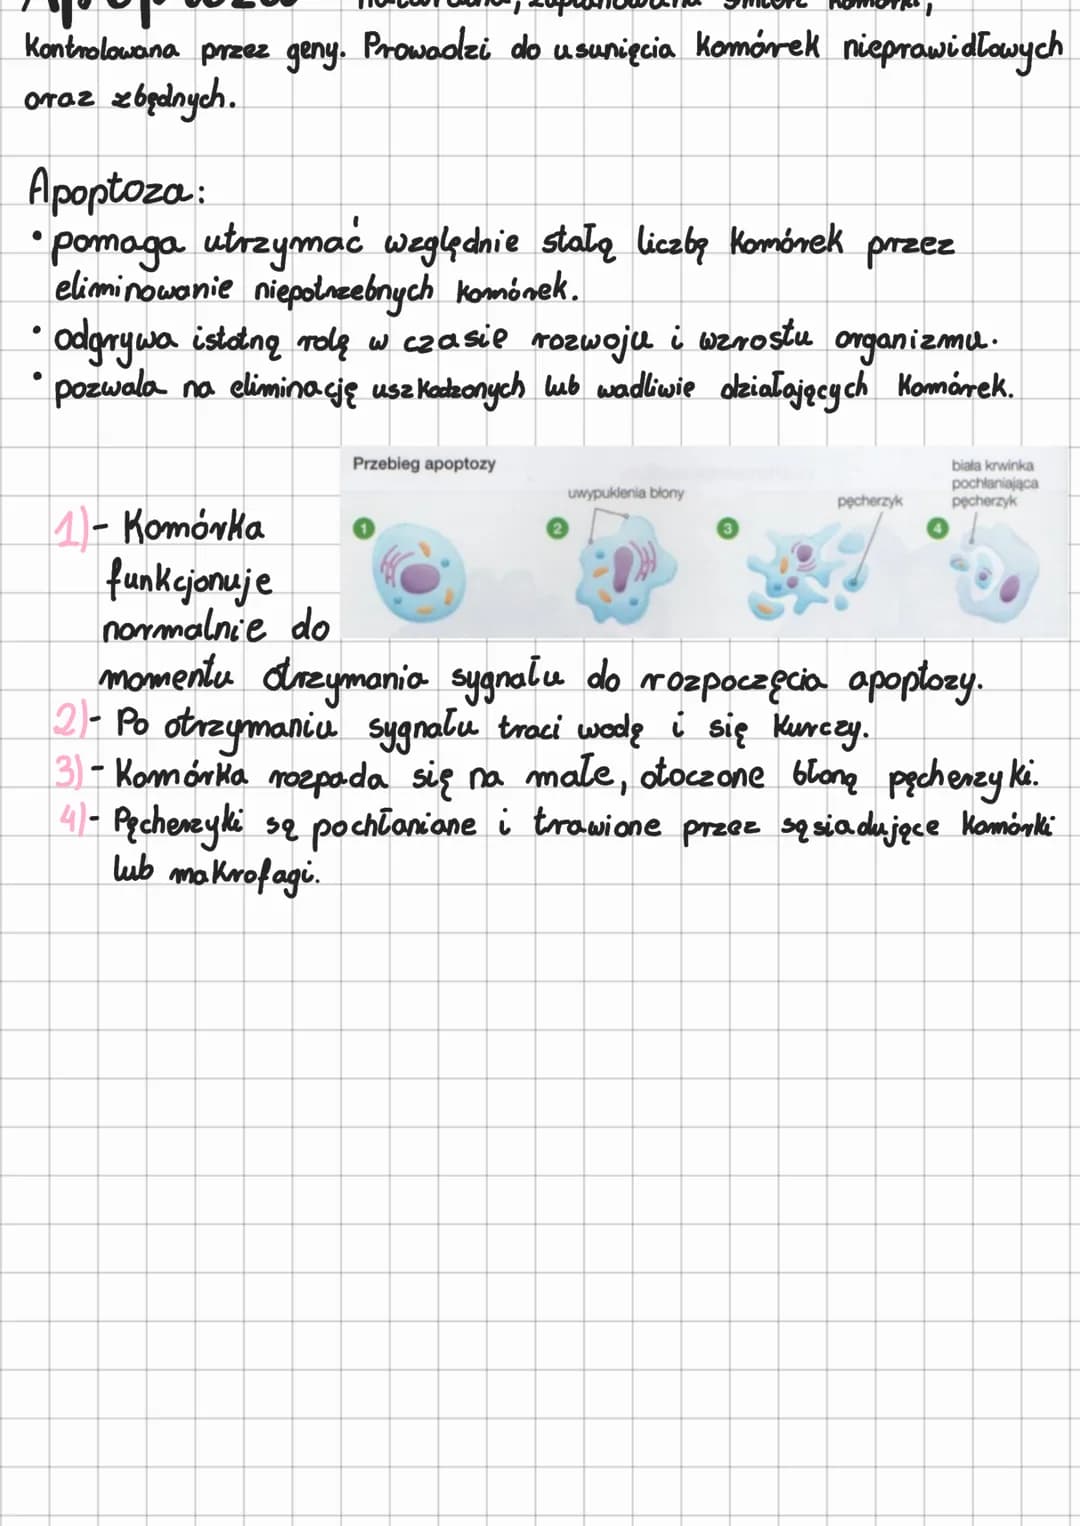 Apoptoza naturalna, zaplanowana śmierć komórki,
kontrolowana przez geny. Prowadzi do usunięcia komórek nieprawidłowych
oraz zbędnych.
Apoptoza:
• pomaga utrzymać względnie stałą liczbę komórek przez
eliminowanie niepotrzebnych komórek.
• odgrywa istotną rolę w czasie rozwoju i wzrostu organizmu.
• pozwala na eliminację uszkodzonych lub wadliwie działających komórek.
Przebieg apoptozy
1
2
uwypuklenia błony
3
pęcherzyk
4
biała krwinka
pochłaniająca
pęcherzyk
1)- Komórka
funkcjonuje
normalnie do
momentu otrzymania sygnału do rozpoczęcia apoptozy.
2)- Po otrzymaniu sygnału traci wodę i się kurczy.
3)- Komórka rozpada się na małe, otoczone błoną pęcherzyki.
4)- Pęcherzyki są pochłaniane i trawione przez sąsiadujące komórki
lub makrofagi.